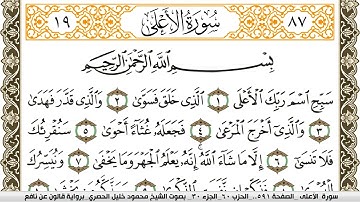 ٨٧ سُورَةُ الأَعْلَى ١٩
بِسْمِ اللَّهِ الرَّحْمَٰنِ الرَّحِيمِ
سَبِّحِ اسْمَ رَبِّكَ الْأَعْلَى ١ الَّذِي خَلَقَ فَسَوَّىٰ ٢ وَالَّذِي قَدَّرَ فَهَدَىٰ
٣ وَالَّذِي أَخْرَجَ الْمَرْعَىٰ ٤ فَجَعَلَهُ غُثَاءً أَحْوَىٰ ٥ سَنُقْرِئُكَ
فَلَا تَنسَىٰ ٦ إِلَّا مَا شَاءَ اللَّهُ إِنَّهُ يَعْلَمُ الْجَهْرَ وَمَا يَخْفَىٰ ٧ وَنُيَسِّرُكَ
سورة الأعلى _الصفحة ٥٩١_ الحزب ٦٠_الجزء ٣٠_ بصوت الشيخ محمود خليل الحصري برواية قالون عن نافع